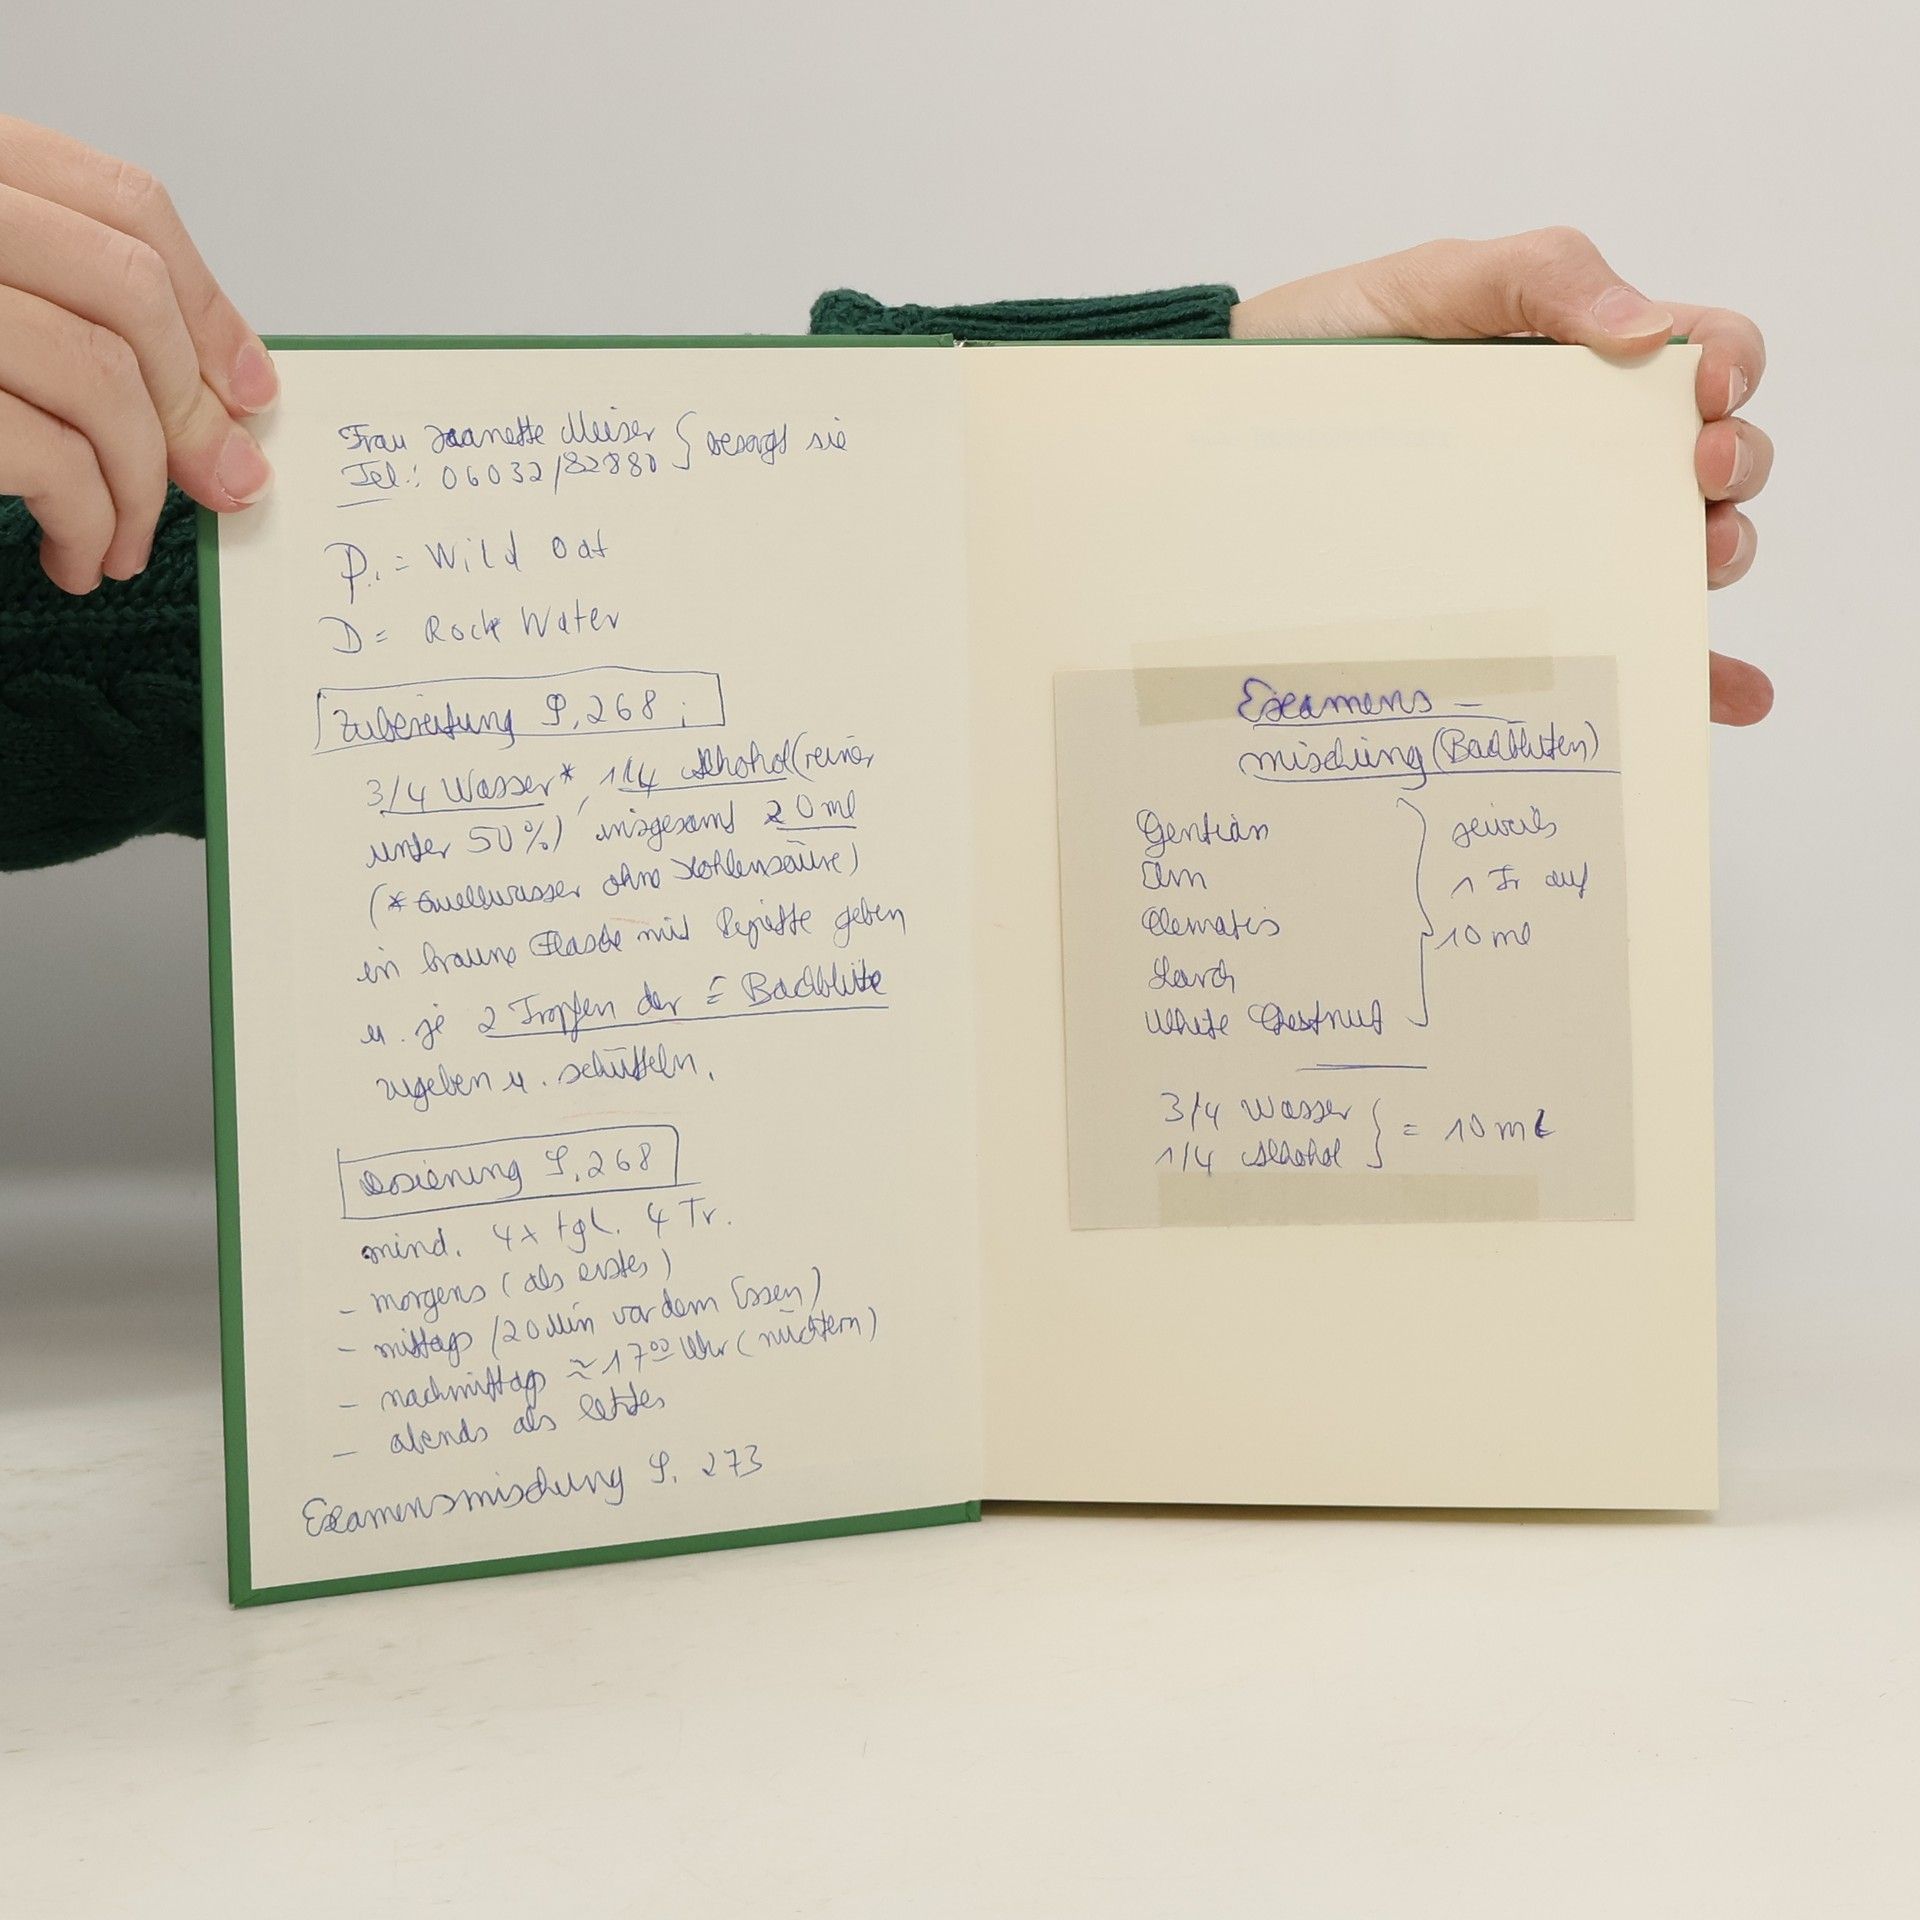 Frau Jeanette Meiser } besorgt sie
Tel.: 06032/82880
P. = Wild Oat
D = Rock Water
Zubereitung S. 268:
3/4 Wasser*, 1/4 Alkohol (reiner
unter 50%) insgesamt 20 ml
(* Quellwasser ohne Kohlensäure)
in braune Flasche mit Pipette geben
u. je 2 Tropfen der = Bachblüte
zugeben u. schütteln.
Dosierung S. 268
mind. 4x tgl. 4 Tr.
- morgens (als erstes)
- mittags (20 Min vor dem Essen)
- nachmittags ≈ 17⁰⁰ Uhr (nüchtern)
- abends als letztes
Examensmischung S. 273
Examens-
mischung (Bachblüten)
Gentian } jeweils
Elm 1 Tr auf
Clematis 10 ml
Larch
White Chestnut
3/4 Wasser } = 10 ml
1/4 Alkohol